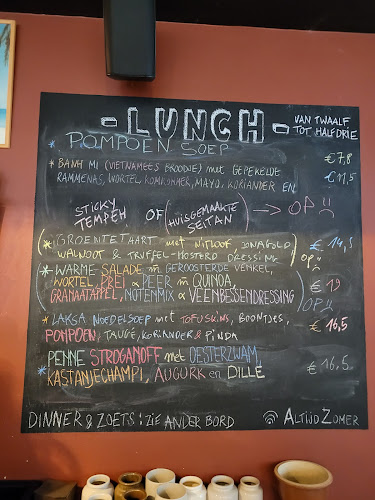 - LUNCH -
VAN TWAALF
TOT HALFDRIE
* POMPOEN SOEP €7,8
* BANH MI (VIETNAMEES BROODJE) met GEPEKELDE €11,5
RAMMENAS, WORTEL, KOMKOMMER, MAYO, KORIANDER EN
STICKY TEMPEH OF (HUISGEMAAKTE SEITAN) → OP :(
* (GROENTETAART met WITLOOF JONAGOLD € 14,5
WALNOOT & TRUFFEL-MOSTERD DRESSING) OP :(
* (WARME SALADE m GEROOSTERDE VENKEL,
WORTEL, PREI & PEER m QUINOA, € 19
GRANAATAPPEL, NOTENMIX & VEENBESSENDRESSING) OP :(
* LAKSA NOEDELSOEP met TOFUSKINS, BOONTJES, € 16,5
POMPOEN, TAUGÉ, KORIANDER & PINDA
PENNE STROGANOFF met OESTERZWAM, € 16,5
* KASTANJECHAMPI, AUGURK en DILLE
DINNER & ZOETS: ZIE ANDER BORD
ALTIJD ZOMER